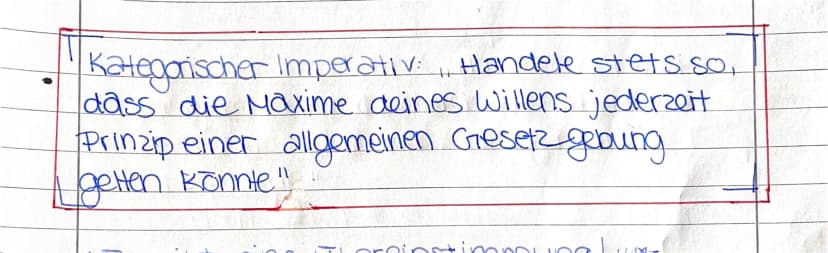 Kategorischer Imperativ: „Handele stets so,
dass die Maxime deines Willens jederzeit
Prinzip einer allgemeinen Gesetzgebung
gelten könnte"